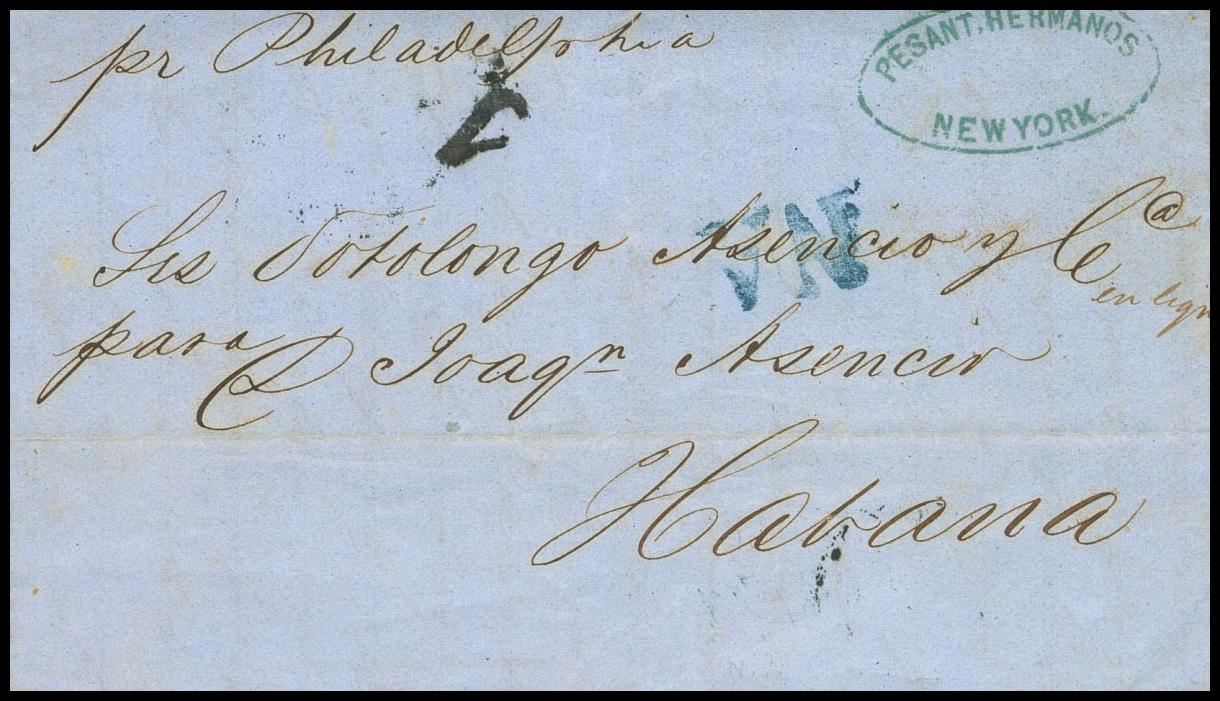 pr Philadelphia
PESANT, HERMANOS
NEW YORK.
Srs Sotolongo Asencio y Cª
para D Joaqn Asencio
Habana